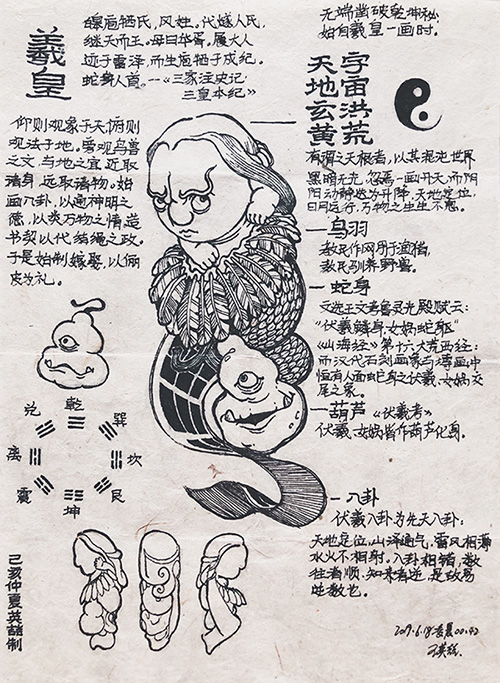 羲皇
庖牺氏，风姓。代燧人氏，
继天而王。母曰华胥。履大人
迹于雷泽，而生庖牺于成纪。
蛇身人首。--《三家注史记
三皇本纪》
无端凿破乾坤秘，
始自羲皇一画时。
宇宙洪荒
天地玄黄
仰则观象于天，俯则
观法于地。旁观鸟兽
之文，与地之宜，近取
诸身，远取诸物。始
画八卦，以通神明之
德，以类万物之情。造
书契以代结绳之政。
于是始制嫁娶，以俪
皮为礼。
有谓之天根者，以其混沌世界
黑暗无光，忽焉一画开天，而阴
阳动静遂分升降，天地定位，
日月运行，万物之生生不息。
一鸟羽
教民作网用于渔猎，
教民驯养野兽。
一蛇身
文选王文考鲁灵光殿赋云：
“伏羲鳞身，女娲蛇躯”
《山海经》第十六大荒西经：
而汉代石刻画象与砖画中，
恒有人面蛇身之伏羲、女娲交
尾之象。
一葫芦《伏羲考》
伏羲、女娲皆作葫芦化身。
一八卦
伏羲八卦为先天八卦：
天地定位，山泽通气，雷风相薄
水火不相射。八卦相错，数
往者顺，知来者逆，是故易
逆数也。
乾
兑
巽
离
坎
震
艮
坤
己亥仲夏英
制
2019.6.18凌晨00:42